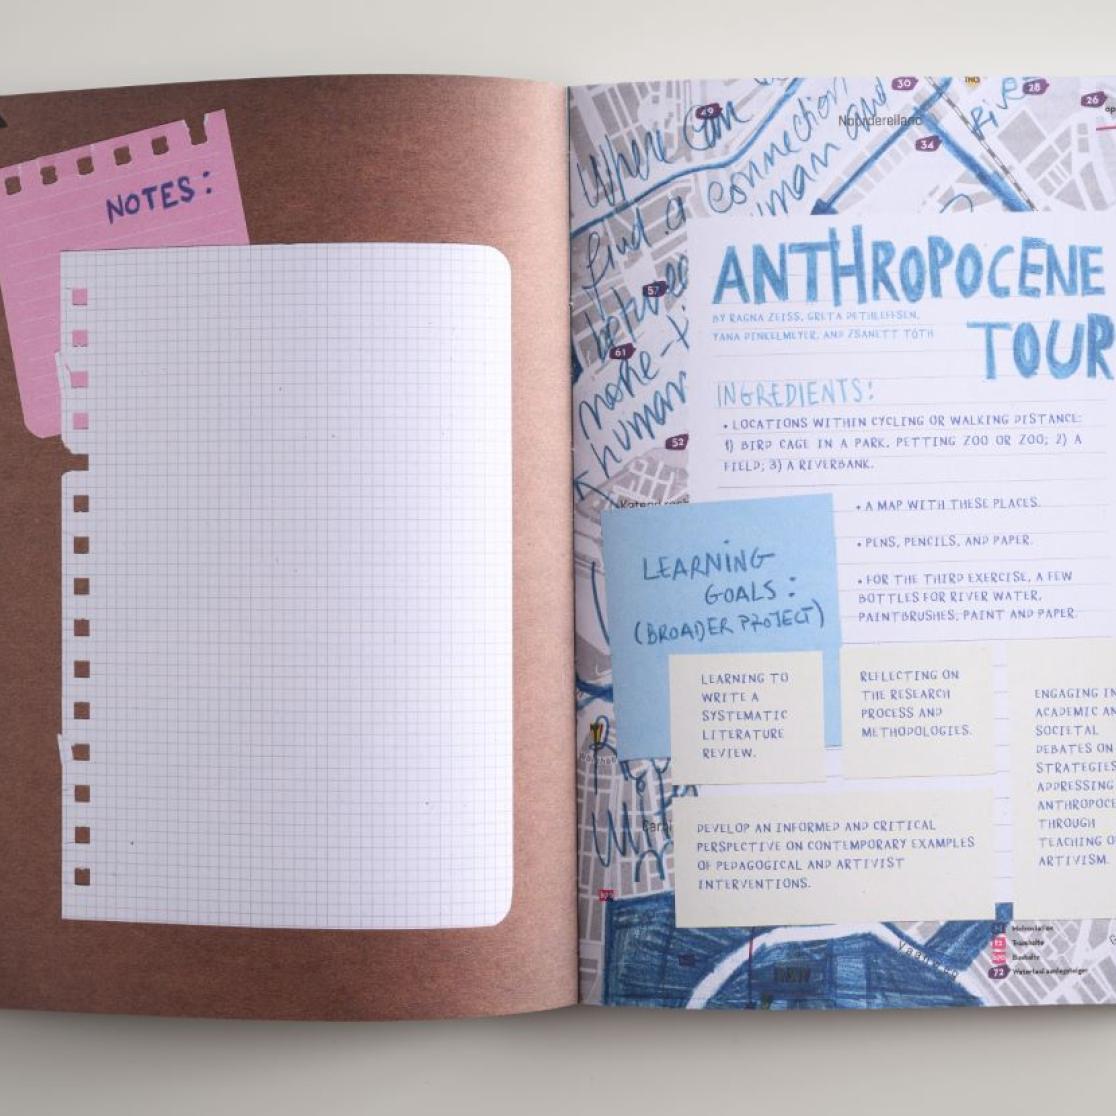 NOTES:
49
30
28
26
34
57
61
52
Noordereiland
Where can
find a
connection
between
human and
none-
human
river
ANTHROPOCENE
TOUR
BY RAGNA ZEISS, GRETA DETHLEFFSEN,
YANA DINKELMEYER, AND ZSANETT TÓTH
INGREDIENTS:
• LOCATIONS WITHIN CYCLING OR WALKING DISTANCE:
1) BIRD CAGE IN A PARK, PETTING ZOO OR ZOO; 2) A
FIELD; 3) A RIVERBANK.
• A MAP WITH THESE PLACES.
• PENS, PENCILS, AND PAPER.
• FOR THE THIRD EXERCISE, A FEW
BOTTLES FOR RIVER WATER,
PAINTBRUSHES, PAINT AND PAPER.
LEARNING
GOALS:
(BROADER PROJECT)
LEARNING TO
WRITE A
SYSTEMATIC
LITERATURE
REVIEW.
REFLECTING ON
THE RESEARCH
PROCESS AND
METHODOLOGIES.
ENGAGING IN
ACADEMIC AN
SOCIETAL
DEBATES ON
STRATEGIES
ADDRESSING
ANTHROPOCE
THROUGH
TEACHING O
ARTIVISM.
DEVELOP AN INFORMED AND CRITICAL
PERSPECTIVE ON CONTEMPORARY EXAMPLES
OF PEDAGOGICAL AND ARTIVIST
INTERVENTIONS.
Metrostation
Tramhalte
Bushalte
72 Watertaxi aanlegsteiger